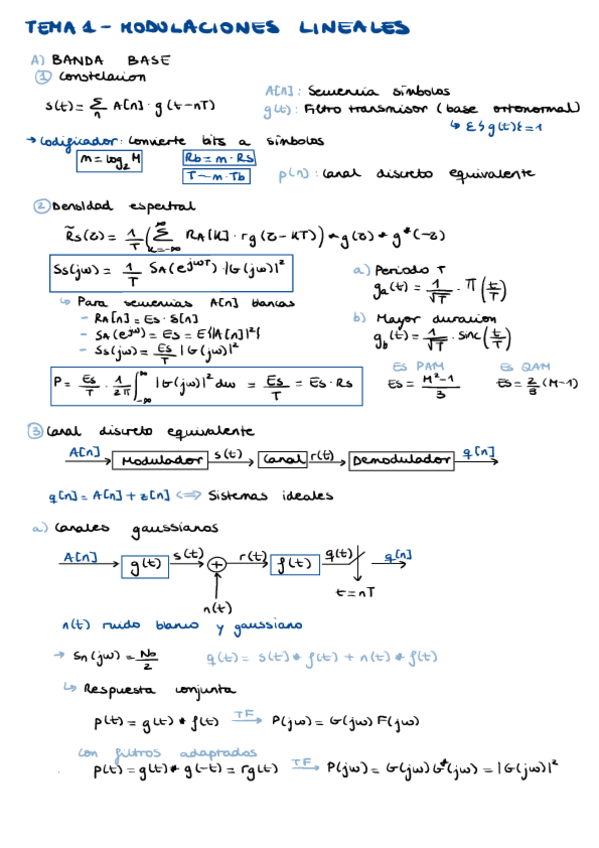 TEMA 1 - MODULACIONES LINEALES
A) BANDA BASE
① Constelacion
s(t) = Σ_n A[n] · g(t-nT)
A[n]: Secuencia símbolos
g(t): Filtro transmisor (base ortonormal)
↳ ε{g(t)} = 1
→ Codificador: Convierte bits a símbolos
m = log₂ M
Rb = m · Rs
T = m · Tb
p[n]: Canal discreto equivalente
② Densidad espectral
R̃s(τ) = 1/T (Σ_{k=-∞}^{∞} RA[K] · rg(τ-KT)) * g(τ) * g*(-τ)
Ss(jω) = 1/T SA(e^{jωT}) · |G(jω)|²
↳ Para secuencias A[n] blancas
- RA[n] = Es · δ[n]
- SA(e^{jω}) = Es = E{|A[n]|²}
- Ss(jω) = Es/T |G(jω)|²
a) Periodo T
ga(t) = 1/√T · Π(t/T)
b) Mayor duracion
gb(t) = 1/√T · sinc(t/T)
P = Es/T · 1/2π ∫_{-∞}^{∞} |G(jω)|² dω = Es/T = Es · Rs
Es PAM
Es = M²-1/3
Es QAM
Es = 2/3 (M-1)
③ Canal discreto equivalente
A[n] → Modulador s(t) → Canal r(t) → Demodulador q[n]
q[n] = A[n] + z[n] <=> Sistemas ideales
a) Canales gaussianos
A[n] g(t) s(t) + r(t) f(t) q(t) q[n]
t = nT
n(t)
n(t) ruido blanco y gaussiano
→ Sn(jω) = No/2
q(t) = s(t) * f(t) + n(t) * f(t)
↳ Respuesta conjunta
p(t) = g(t) * f(t) TF→ P(jω) = G(jω) F(jω)
Con filtros adaptados
p(t) = g(t) * g(-t) = rg(t) TF→ P(jω) = G(jω) G*(jω) = |G(jω)|²